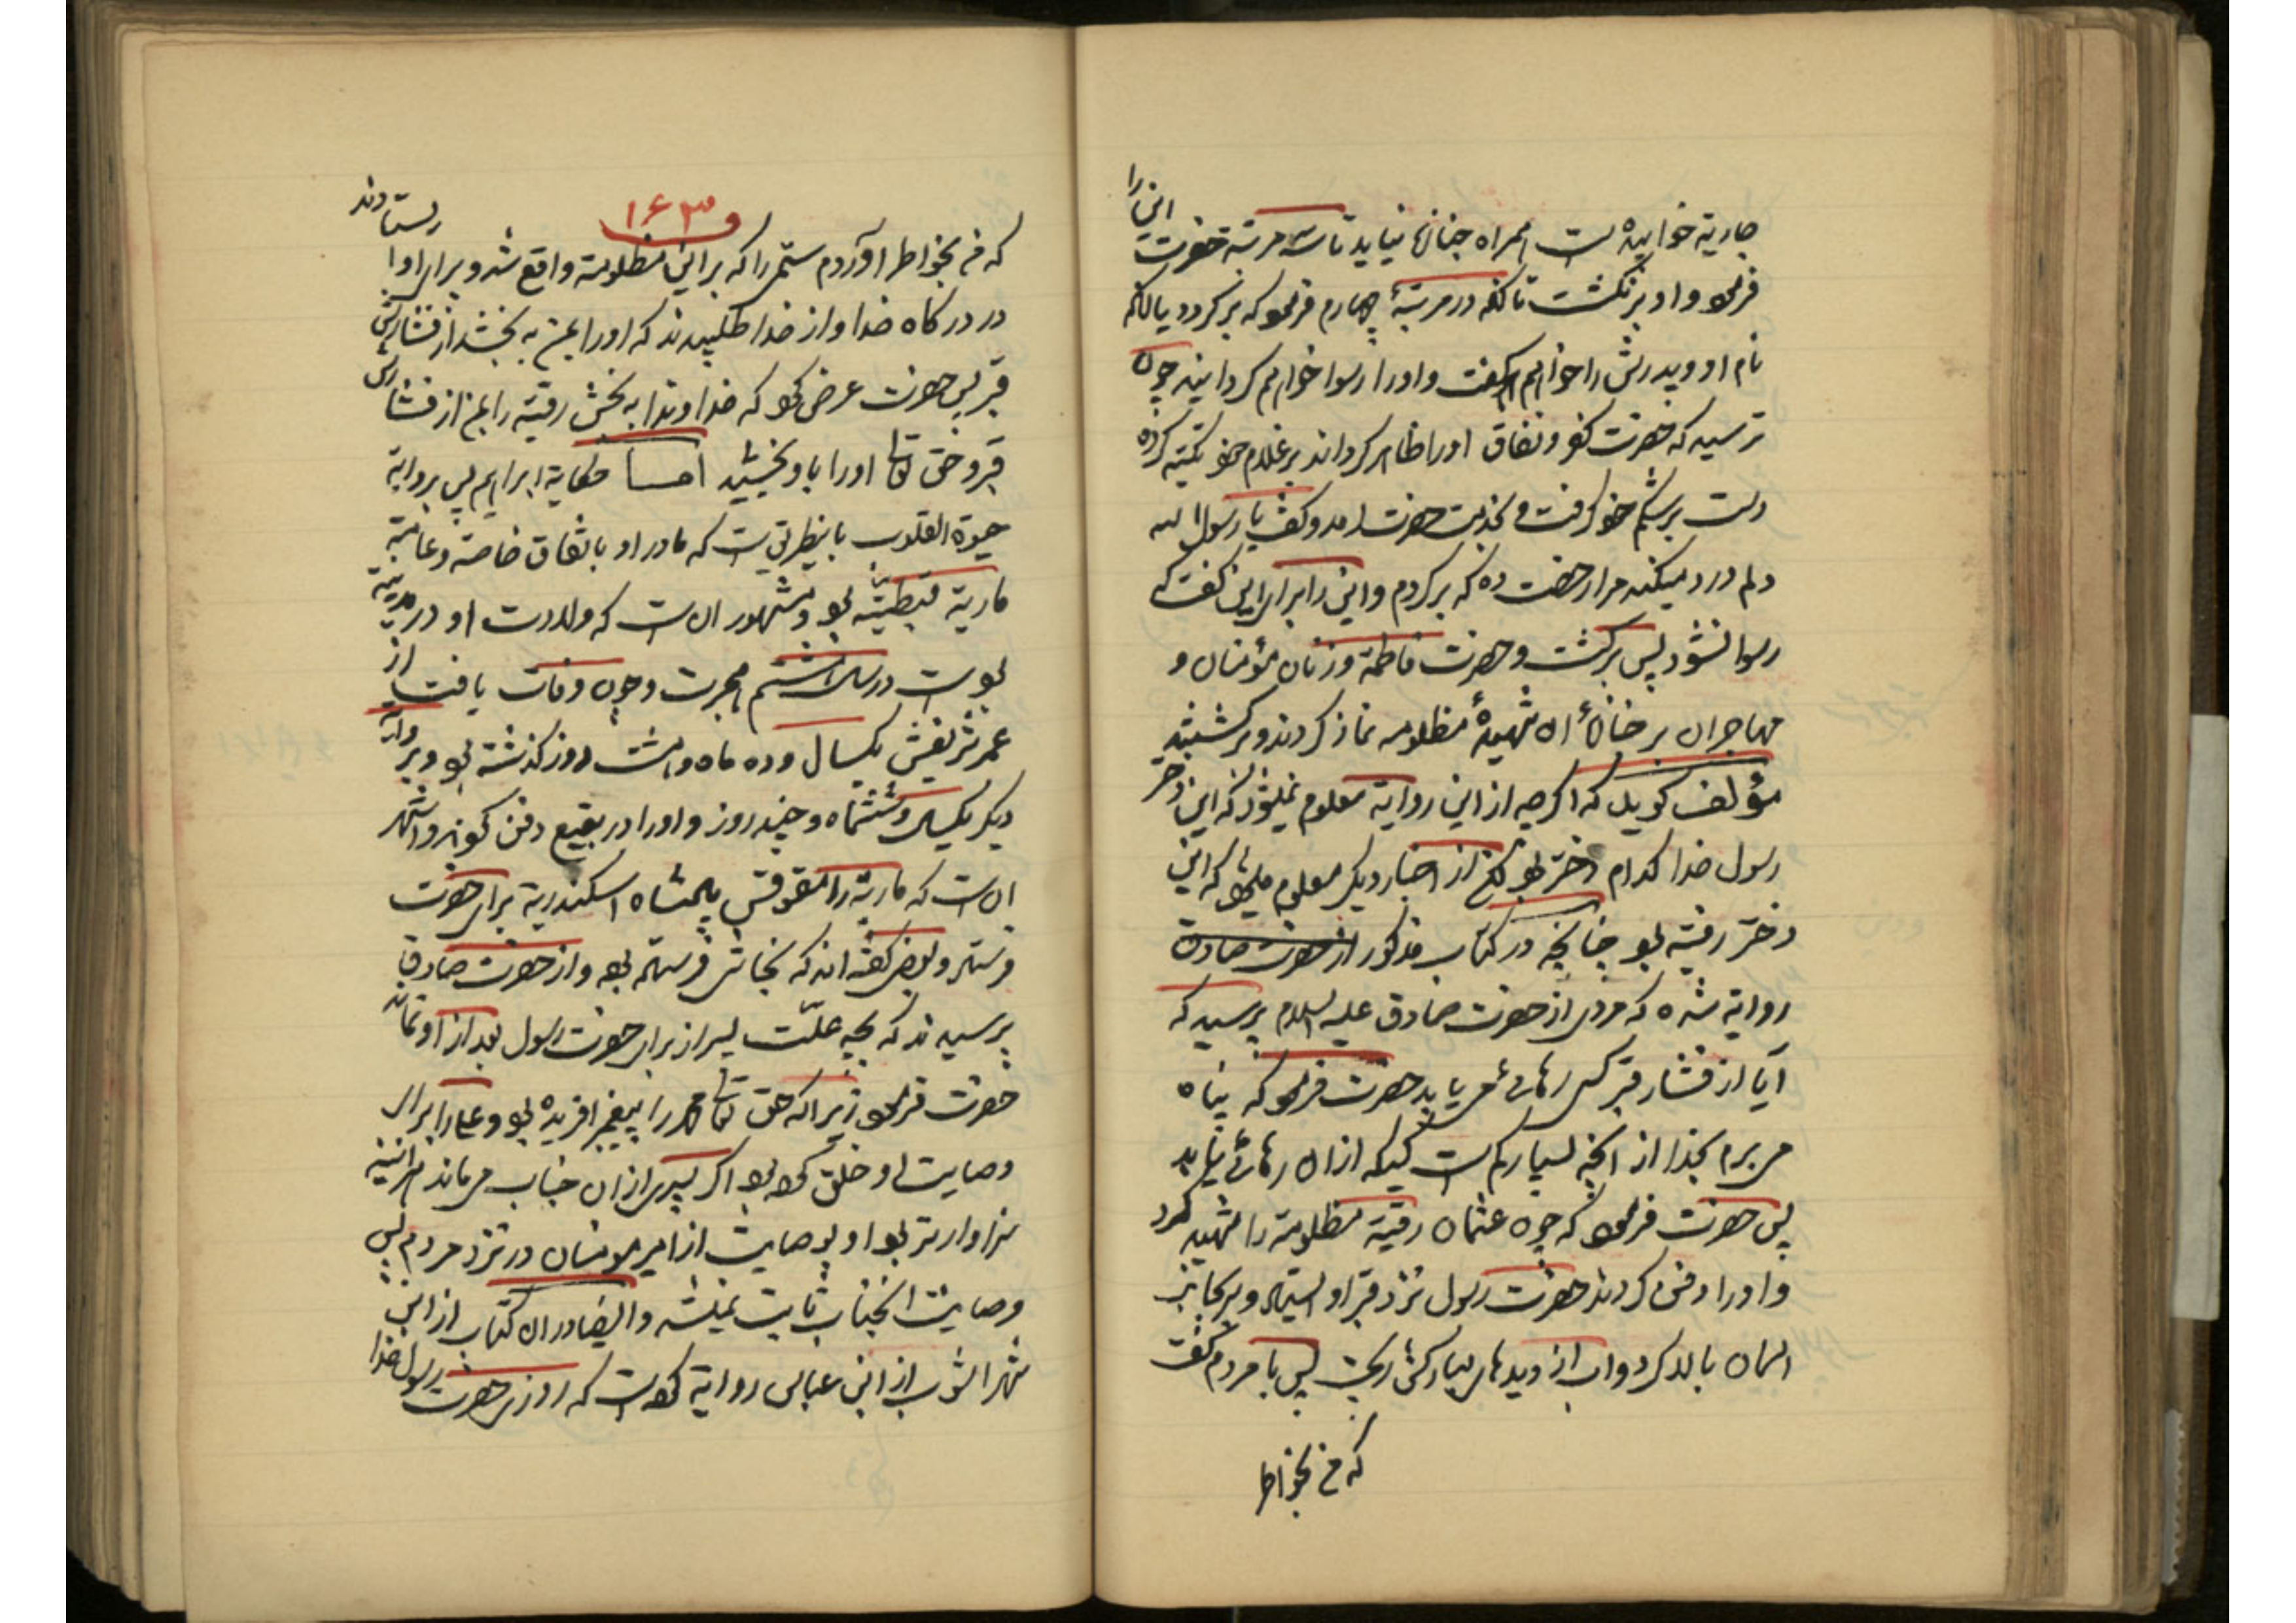 جاریة خوابیده است همراه جنازه نیاید تا سه مرتبه حضرت این را
فرمود و او برنگشت تا آنکه در مرتبهٔ چهارم فرمود که برگردد یا آنکه
نام او و پدرش را خواهم گفت و او را رسوا خواهم گردانید چون
ترسید که حضرت کفر و نفاق او را ظاهر گرداند بر غلام خود تکیه کرده
دست بر شکم خود گرفت و بخدمت حضرت آمد و گفت یا رسول الله
دلم درد میکند مرا رخصت ده که برگردم و این را برای این گفت که
رسوا نشود پس برگشت و حضرت فاطمة و زنان مؤمنان و
مهاجران بر جنازهٔ آن شهیدهٔ مظلومه نماز کردند و برگشتند
مؤلف گوید که اگرچه از این روایة معلوم نمیشود که این دختر
رسول خدا کدام دختر بود لکن از اخبار دیگر معلوم میشود که این
دختر رقیه بود چنانچه در کتاب مذکور از حضرت صادق
روایة شده که مردی از حضرت صادق علیه السلام پرسید که
آیا از فشار قبر کسی رهائی می یابد حضرت فرمود که پناه
می برم بخدا از آنچه بسیار کم است کسیکه از آن رهائی یابد
پس حضرت فرمود که چون عثمان رقیة مظلومة را شهید کرد
و او را دفن کردند حضرت رسول نزد قبر او ایستاد و سر بجانب
آسمان بالا کرد و آب از دیدهای مبارکش ریخت پس با مردم گفت
که من بخواطر
۱۶۳
که من بخواطر آوردم ستمی را که بر این مظلومة واقع شد و برای او ایستادند
در درگاه خدا و از خدا طلبیدند که او را بمن به بخشد از فشارش
قبر پس حضرت عرض کرد که خداوندا به بخش رقیّة را بمن از فشارش
قبر و حق تعالی او را باو بخشید امّا حکایة ابراهیم پس بروایة
حیوة القلوب باینطریق است که مادر او باتفاق خاصة و عامّة
ماریة قبطیّة بود و مشهور آن است که ولادت او در مدینه
بود است در سال هشتم هجرت و چون وفات یافت از
عمر شریفش یکسال و ده ماه و هشت روز گذشته بود و بروایة
دیگر یکسال و ششماه و چند روز و او را در بقیع دفن کردند و اشهر
آن است که ماریة را مقوقس پادشاه اسکندریة برای حضرت
فرستاد و بعضی گفته اند که نجاشی فرستاده بود و از حضرت صادق
پرسیدند که بچه علّت پسر از برای حضرت رسول بعد از او نماند
حضرت فرمود زیرا که حق تعالی محمد را پیغمبر آفریده بود و علی را برای
وصایت او خلق کرده بود اگر پسری از آن جناب می ماند هر آینه
سزاوارتر بود او بوصایت از امیر مومنان در نزد مردم پس
وصایت آنجناب ثابت نمیشد و ایضا در آن کتاب از ابن
شهر آشوب از ابن عباس روایة کرده است که روزی حضرت رسول خدا